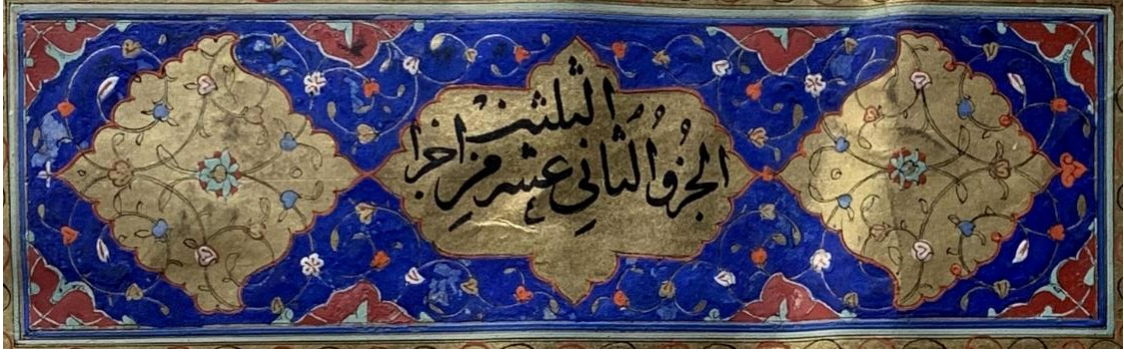 الجزؤ الثاني عشر من اجزا
الثلثين